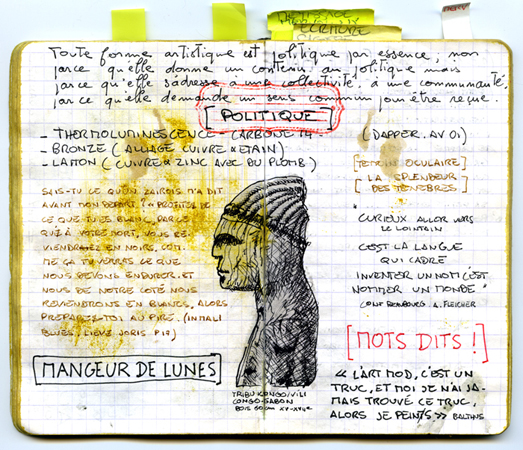 Toute forme artistique est politique par essence, non
parce qu'elle donne un contenu au politique mais
parce qu'elle s'adresse à une collectivité, à une communauté,
parce qu'elle demande un sens commun pour être reçue.
[POLITIQUE]
- THERMOLUMINESCENCE - CARBONE 14 -
- BRONZE (ALLIAGE CUIVRE & ETAIN)
- LAITON (CUIVRE & ZINC AVEC DU PLOMB)
(DAPPER. AV 01)
[TEMOIN OCULAIRE]
[LA SPLENDEUR
DES TENEBRES]
SAIS-TU CE QU'UN ZAIROIS M'A DIT
AVANT MON DEPART? "PROFITER DE
CE QUE TU ES BLANC, PARCE
QU'À VOTRE MORT, VOUS RE-
VIENDREZ EN NOIRS, COM-
ME ÇA TU VERRAS CE QUE
NOUS DEVONS ENDURER. ET
NOUS DE NOTRE COTÉ NOUS
REVIENDRONS EN BLANCS, ALORS
PREPARE-TOI AU PIRE. (IN MALI
BLUES. LIEVE JORIS P19)
[MANGEUR DE LUNES]
TRIBU KONGO/VILI
CONGO-GABON
BOIS 60 cm
CURIEUX ALLER VERS
LE LOINTAIN
C'EST LA LANGUE
QUI CADRE
INVENTER UN NOM C'EST
NOMMER UN MONDE"
A. FLEICHER
[MOTS DITS!]
« L'ART MOD, C'EST UN
TRUC, ET MOI JE N'AI JA-
MAIS TROUVÉ CE TRUC,
ALORS JE PEINTS » BALTHUS